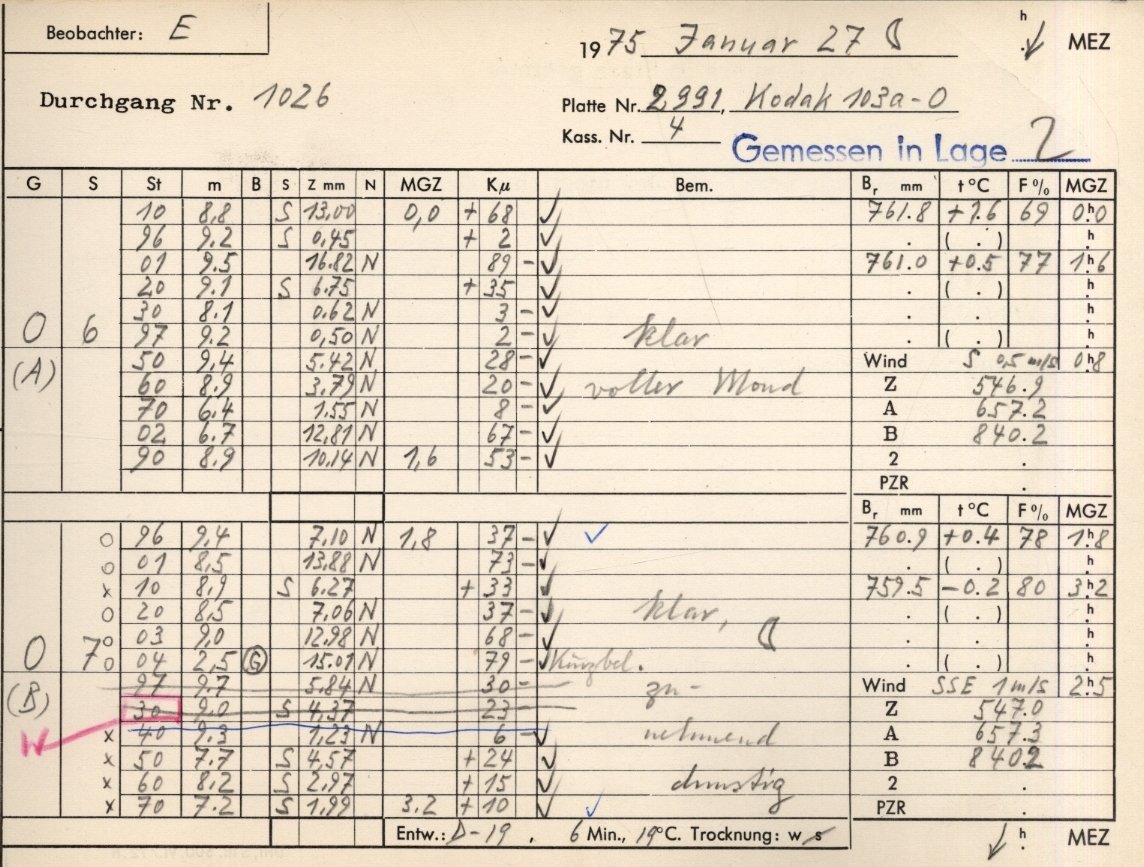 Beobachter: E
1975 Januar 27 h MEZ
Durchgang Nr. 1026
Platte Nr. 2991, Kodak 103a-O
Kass. Nr. 4
Gemessen in Lage 2
G S St m B S Z mm N MGZ Kμ Bem. Br mm t °C F % MGZ
10 8,8 S 13,00 0,0 + 68 761.8 +1.6 69 0h0
96 9.2 S 0,45 + 2 . ( . ) h
01 9.5 16.82 N 89 - 761.0 +0.5 77 1h6
20 9.1 S 6.75 + 35 . ( . ) h
30 8.1 0.62 N 3 - . . h
0 6 97 9.2 0,50 N 2 - klar . ( . ) h
(A) 50 9,4 5.42 N 28 - Wind S 0,5 m/s 0h8
60 8,9 3,79 N 20 - voller Mond Z 546.9
70 6,4 1,55 N 8 - A 657.2
02 6.7 12,81 N 67 - B 840.2
90 8.9 10,14 N 1,6 53 - 2 .
PZR .
Br mm t °C F % MGZ
o 96 9,4 7,10 N 1,8 37 - 760.9 +0.4 78 1h8
o 01 8,5 13,88 N 73 - . ( . ) h
x 10 8,9 S 6.27 + 33 759.5 -0.2 80 3h2
o 20 8,5 7,06 N 37 - klar, . ( . ) h
o 03 9,0 12.98 N 68 - . . h
0 7 o 04 2,5 G 15.01 N 79 - . ( . ) h
(B) 97 9.7 5.84 N 30 - zu- Wind SSE 1 m/s 2h5
30 9.0 S 4,37 23 Z 547.0
x 40 9.3 1,23 N 6 - nehmend A 657.3
x 50 7.7 S 4,57 + 24 B 840.2
x 60 8,2 S 2,97 + 15 dunstig 2 .
x 70 7.2 S 1,99 3.2 + 10 PZR .
Entw.: D-19, 6 Min., 19°C. Trocknung: w s h MEZ